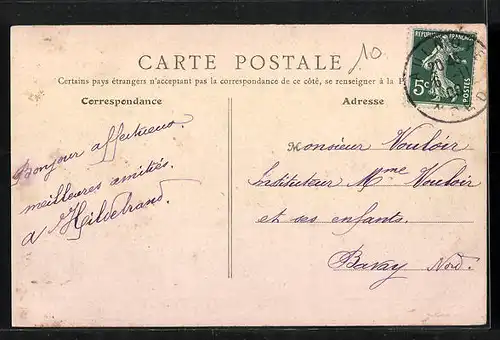 CARTE POSTALE
10
RÉPUBLIQUE FRANÇAISE
5c
POSTES
Certains pays étrangers n'acceptant pas la correspondance de ce côté, se renseigner à la P
Correspondance
Adresse
Bonjour affectueux.
meilleures amitiés.
A Hildebrand.
Monsieur Vouloir
Instituteur Mme Vouloir
et ses enfants.
Bavay Nord.